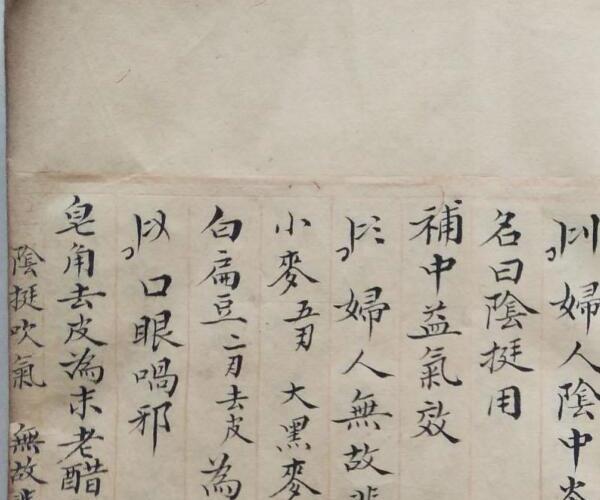 婦人陰中
名曰陰挺用
補中益氣效
婦人無故
小麥五刄大黑麥
白扁豆二刄去皮為
口眼喎邪
皂角去皮為末老醋
陰挺吹氣 無故